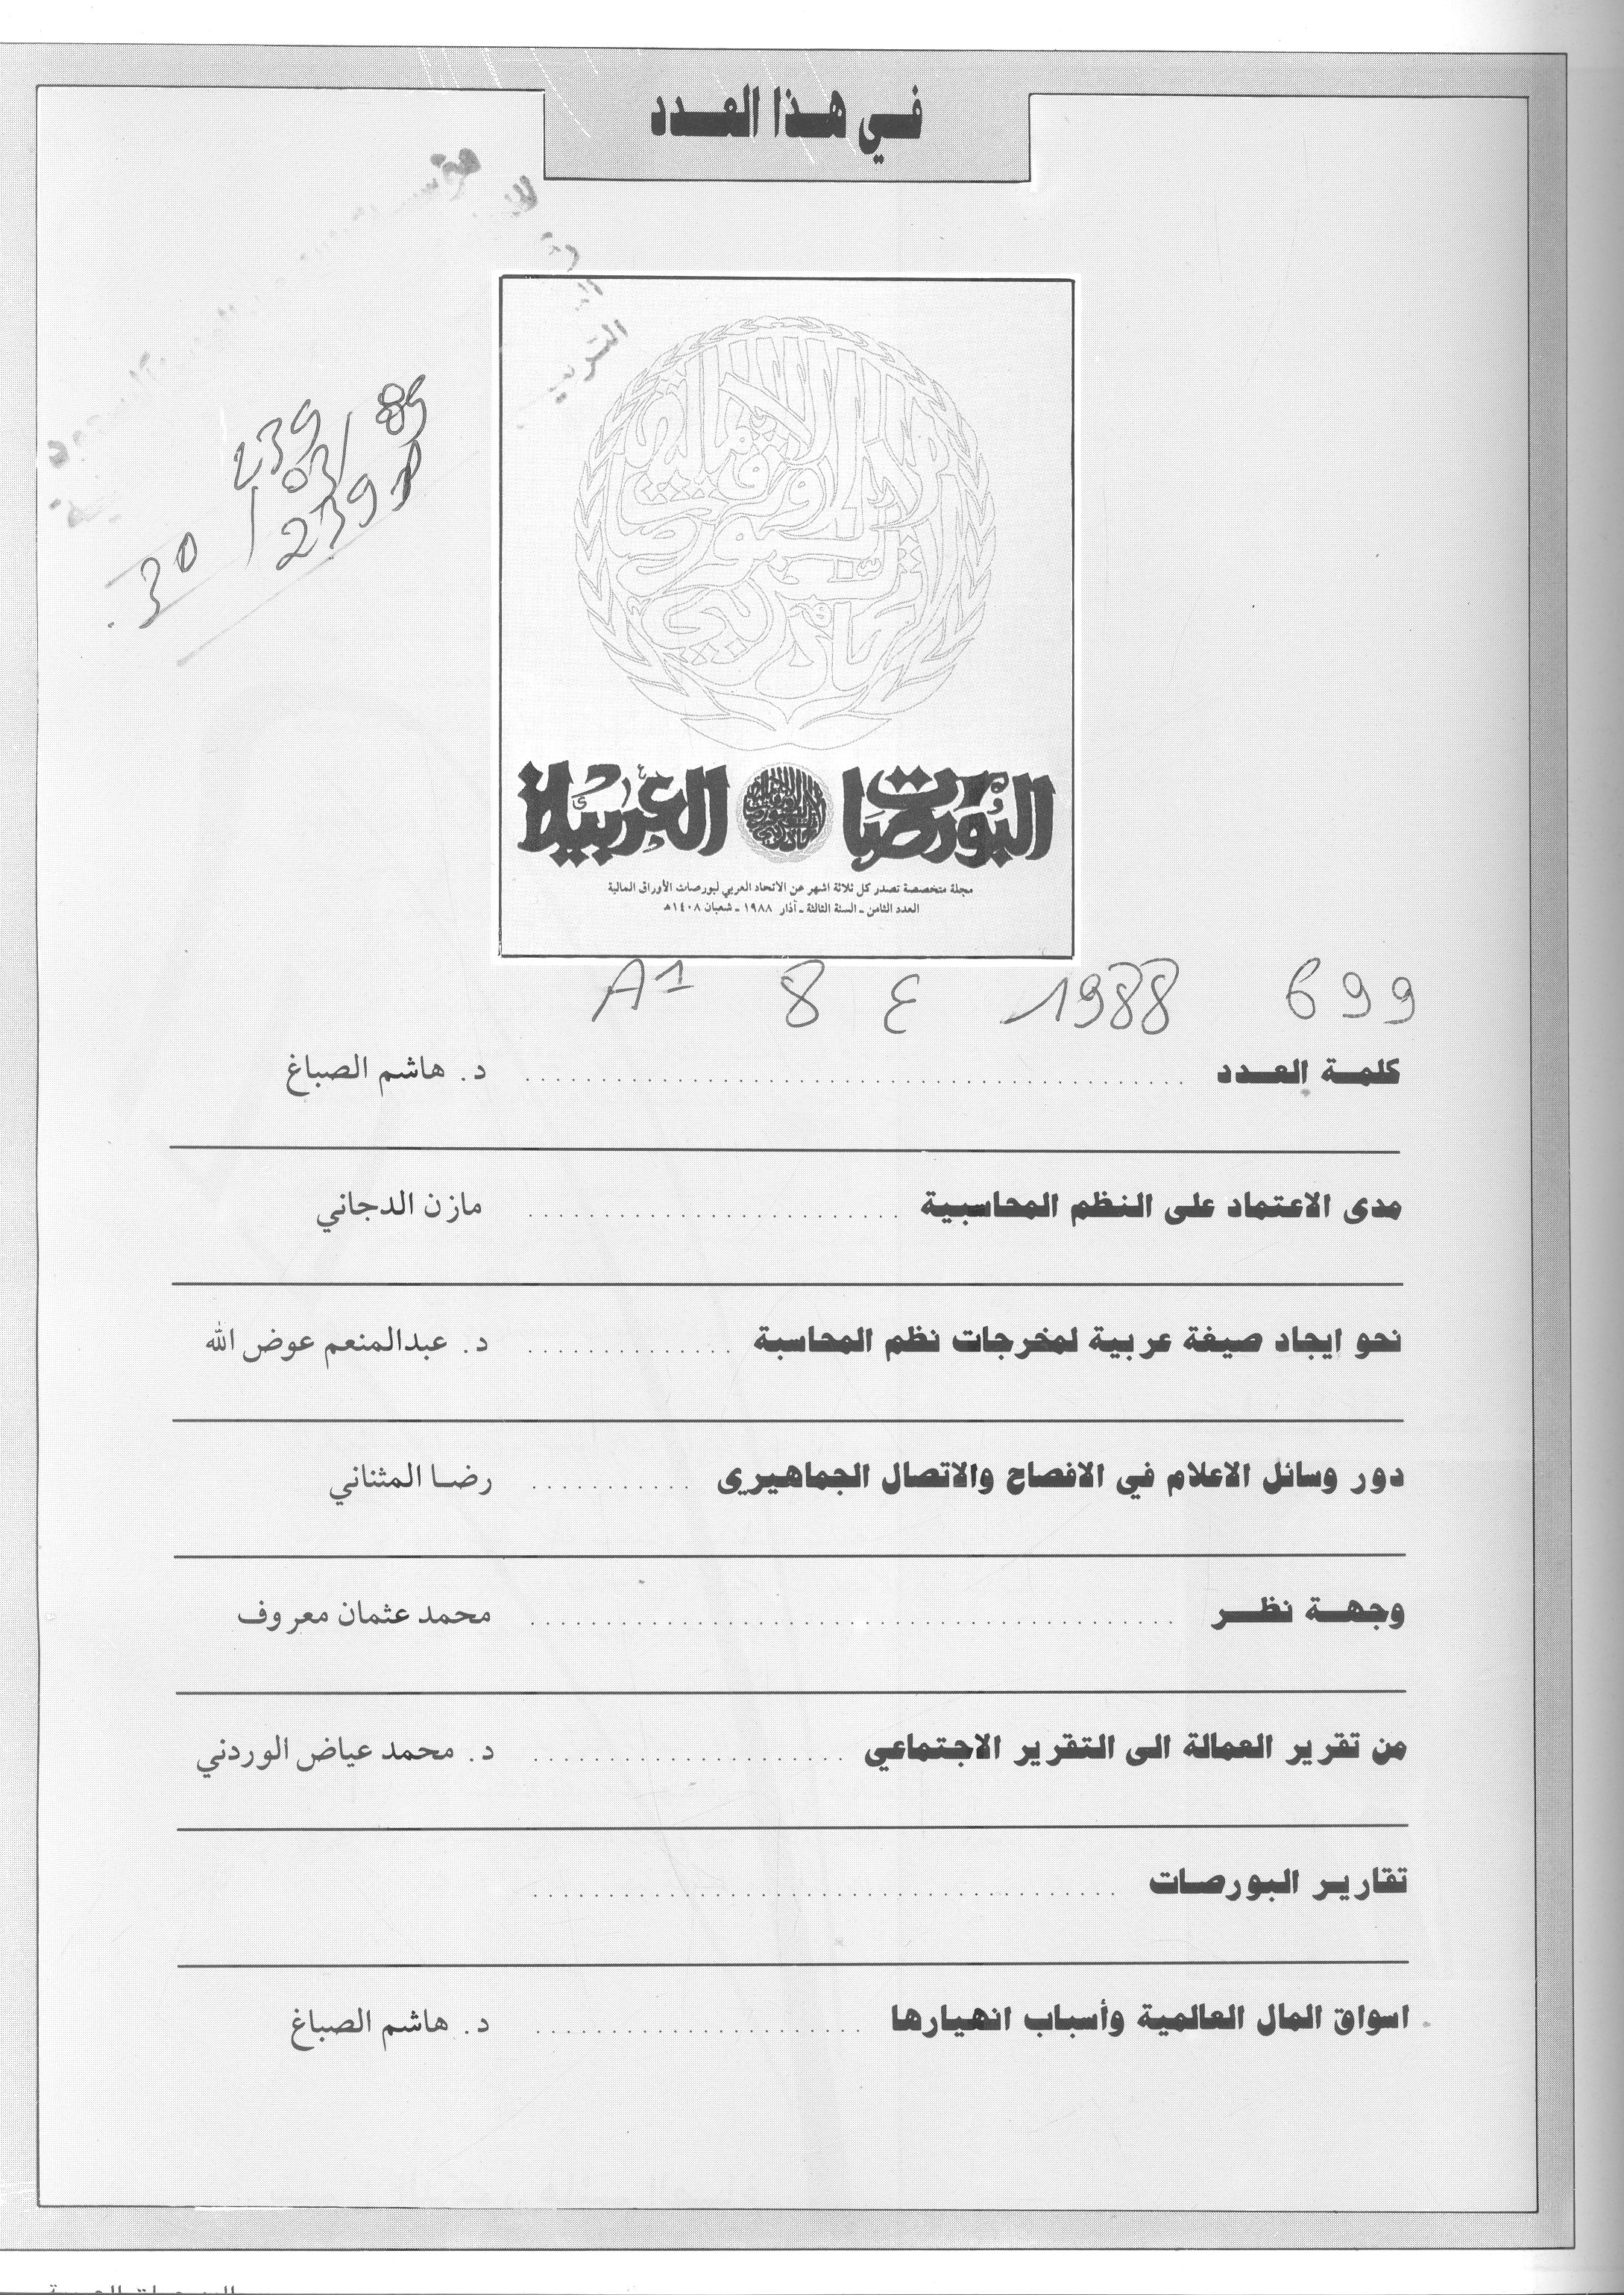 في هذا العدد
239
30 / 03 / 89
239
البورصات العربية
مجلة متخصصة تصدر كل ثلاثة اشهر عن الاتحاد العربي لبورصات الأوراق المالية
العدد الثامن - السنة الثالثة - آذار ١٩٨٨ - شعبان ١٤٠٨هـ
A1 8 ع 1988 699
كلمة العدد ........ د. هاشم الصباغ
مدى الاعتماد على النظم المحاسبية ........ مازن الدجاني
نحو ايجاد صيغة عربية لمخرجات نظم المحاسبة ........ د. عبدالمنعم عوض الله
دور وسائل الاعلام في الافصاح والاتصال الجماهيري ........ رضا المثناني
وجهة نظر ........ محمد عثمان معروف
من تقرير العمالة الى التقرير الاجتماعي ........ د. محمد عياض الوردني
تقارير البورصات ........
اسواق المال العالمية وأسباب انهيارها ........ د. هاشم الصباغ